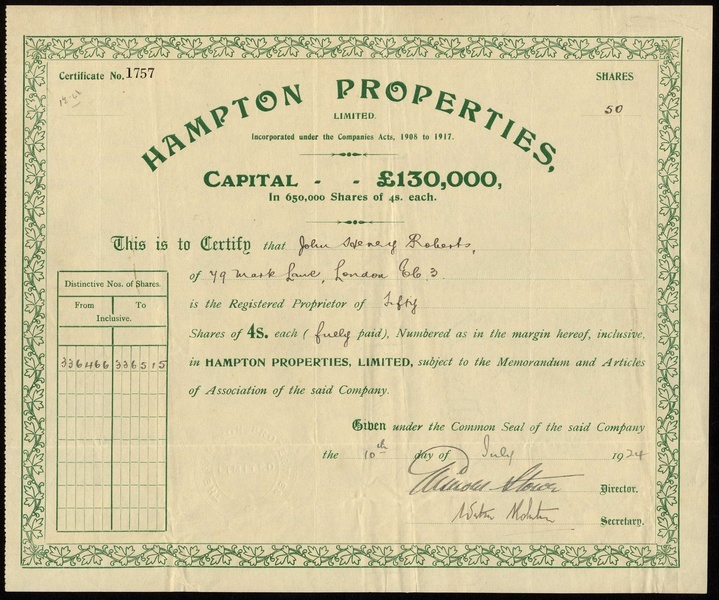 Certificate No. 1757
SHARES
50
HAMPTON PROPERTIES,
LIMITED.
Incorporated under the Companies Acts, 1908 to 1917.
CAPITAL - - £130,000,
In 650,000 Shares of 4s. each.
This is to Certify that John Henry Roberts,
of 79 Mark Lane, London EC. 3
is the Registered Proprietor of Fifty
Shares of 4s. each (fully paid), Numbered as in the margin hereof, inclusive,
in HAMPTON PROPERTIES, LIMITED, subject to the Memorandum and Articles
of Association of the said Company.
Distinctive Nos. of Shares.
From To
Inclusive.
336466 336515
Given under the Common Seal of the said Company
the 10th day of July 1924
Director.
Secretary.